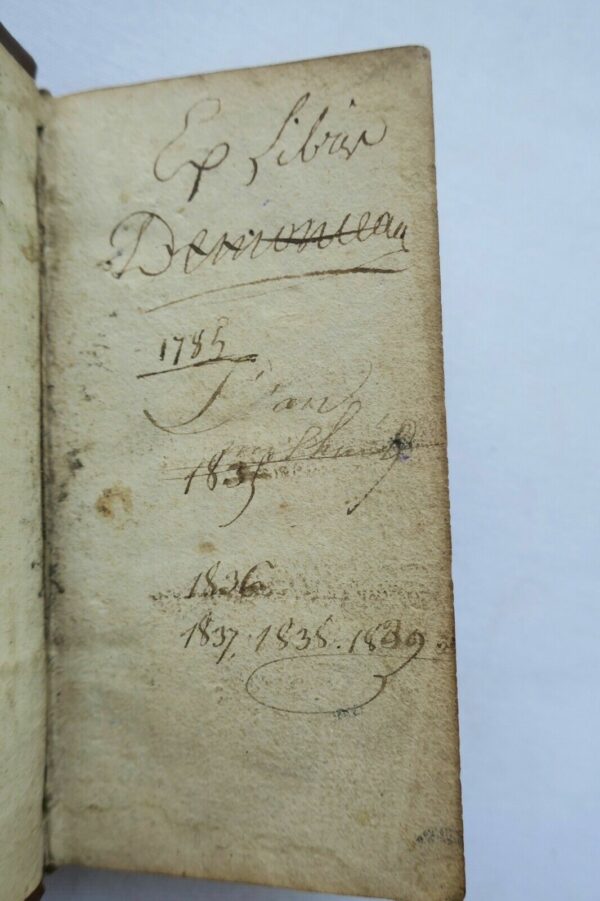 Ex Libris
Demonceau
1785
1835
1836
1837, 1838. 1839